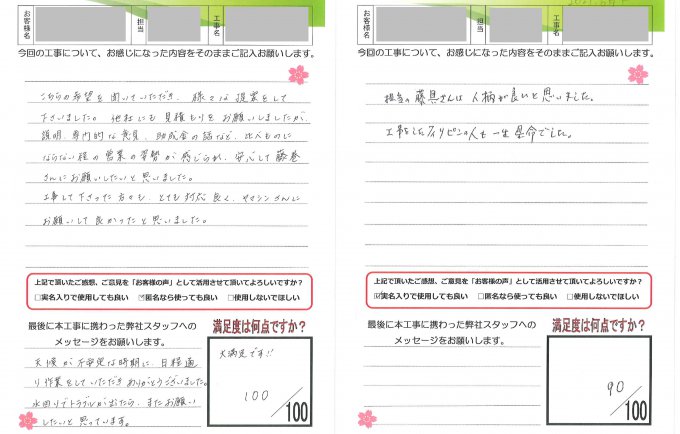 お客様名
担当
工事名
今回の工事について、お感じになった内容をそのままご記入お願いします。
こちらの希望を聞いていただき、様々な提案をして
下さいました。他社にも見積もりをお願いしましたが、
説明、専門的な意見、助成金の話など、比べものに
ならない程の営業の姿勢が感じられ、安心して藤巻
さんにお願いしたいと思いました。
工事して下さった方々も、とても対応良く、ヤマシンさんに
お願いして良かったと思いました。
上記で頂いたご感想、ご意見を「お客様の声」として活用させて頂いてよろしいですか？
□実名入りで使用しても良い ☑匿名なら使っても良い □使用しないでほしい
最後に本工事に携わった弊社スタッフへの
メッセージをお願いします。
天候が不安定な時期に、日程通
り作業をしていただきありがとうございました。
水回りでトラブルが出たら、またお願い
したいと思っています。
満足度は何点ですか？
大満足です!!
100/100
お客様名
担当
工事名
今回の工事について、お感じになった内容をそのままご記入お願いします。
担当の藤巻さんは人柄が良いと思いました。
工事をしたフィリピンの人も一生懸命でした。
上記で頂いたご感想、ご意見を「お客様の声」として活用させて頂いてよろしいですか？
☑実名入りで使用しても良い □匿名なら使っても良い □使用しないでほしい
最後に本工事に携わった弊社スタッフへの
メッセージをお願いします。
満足度は何点ですか？
90/100